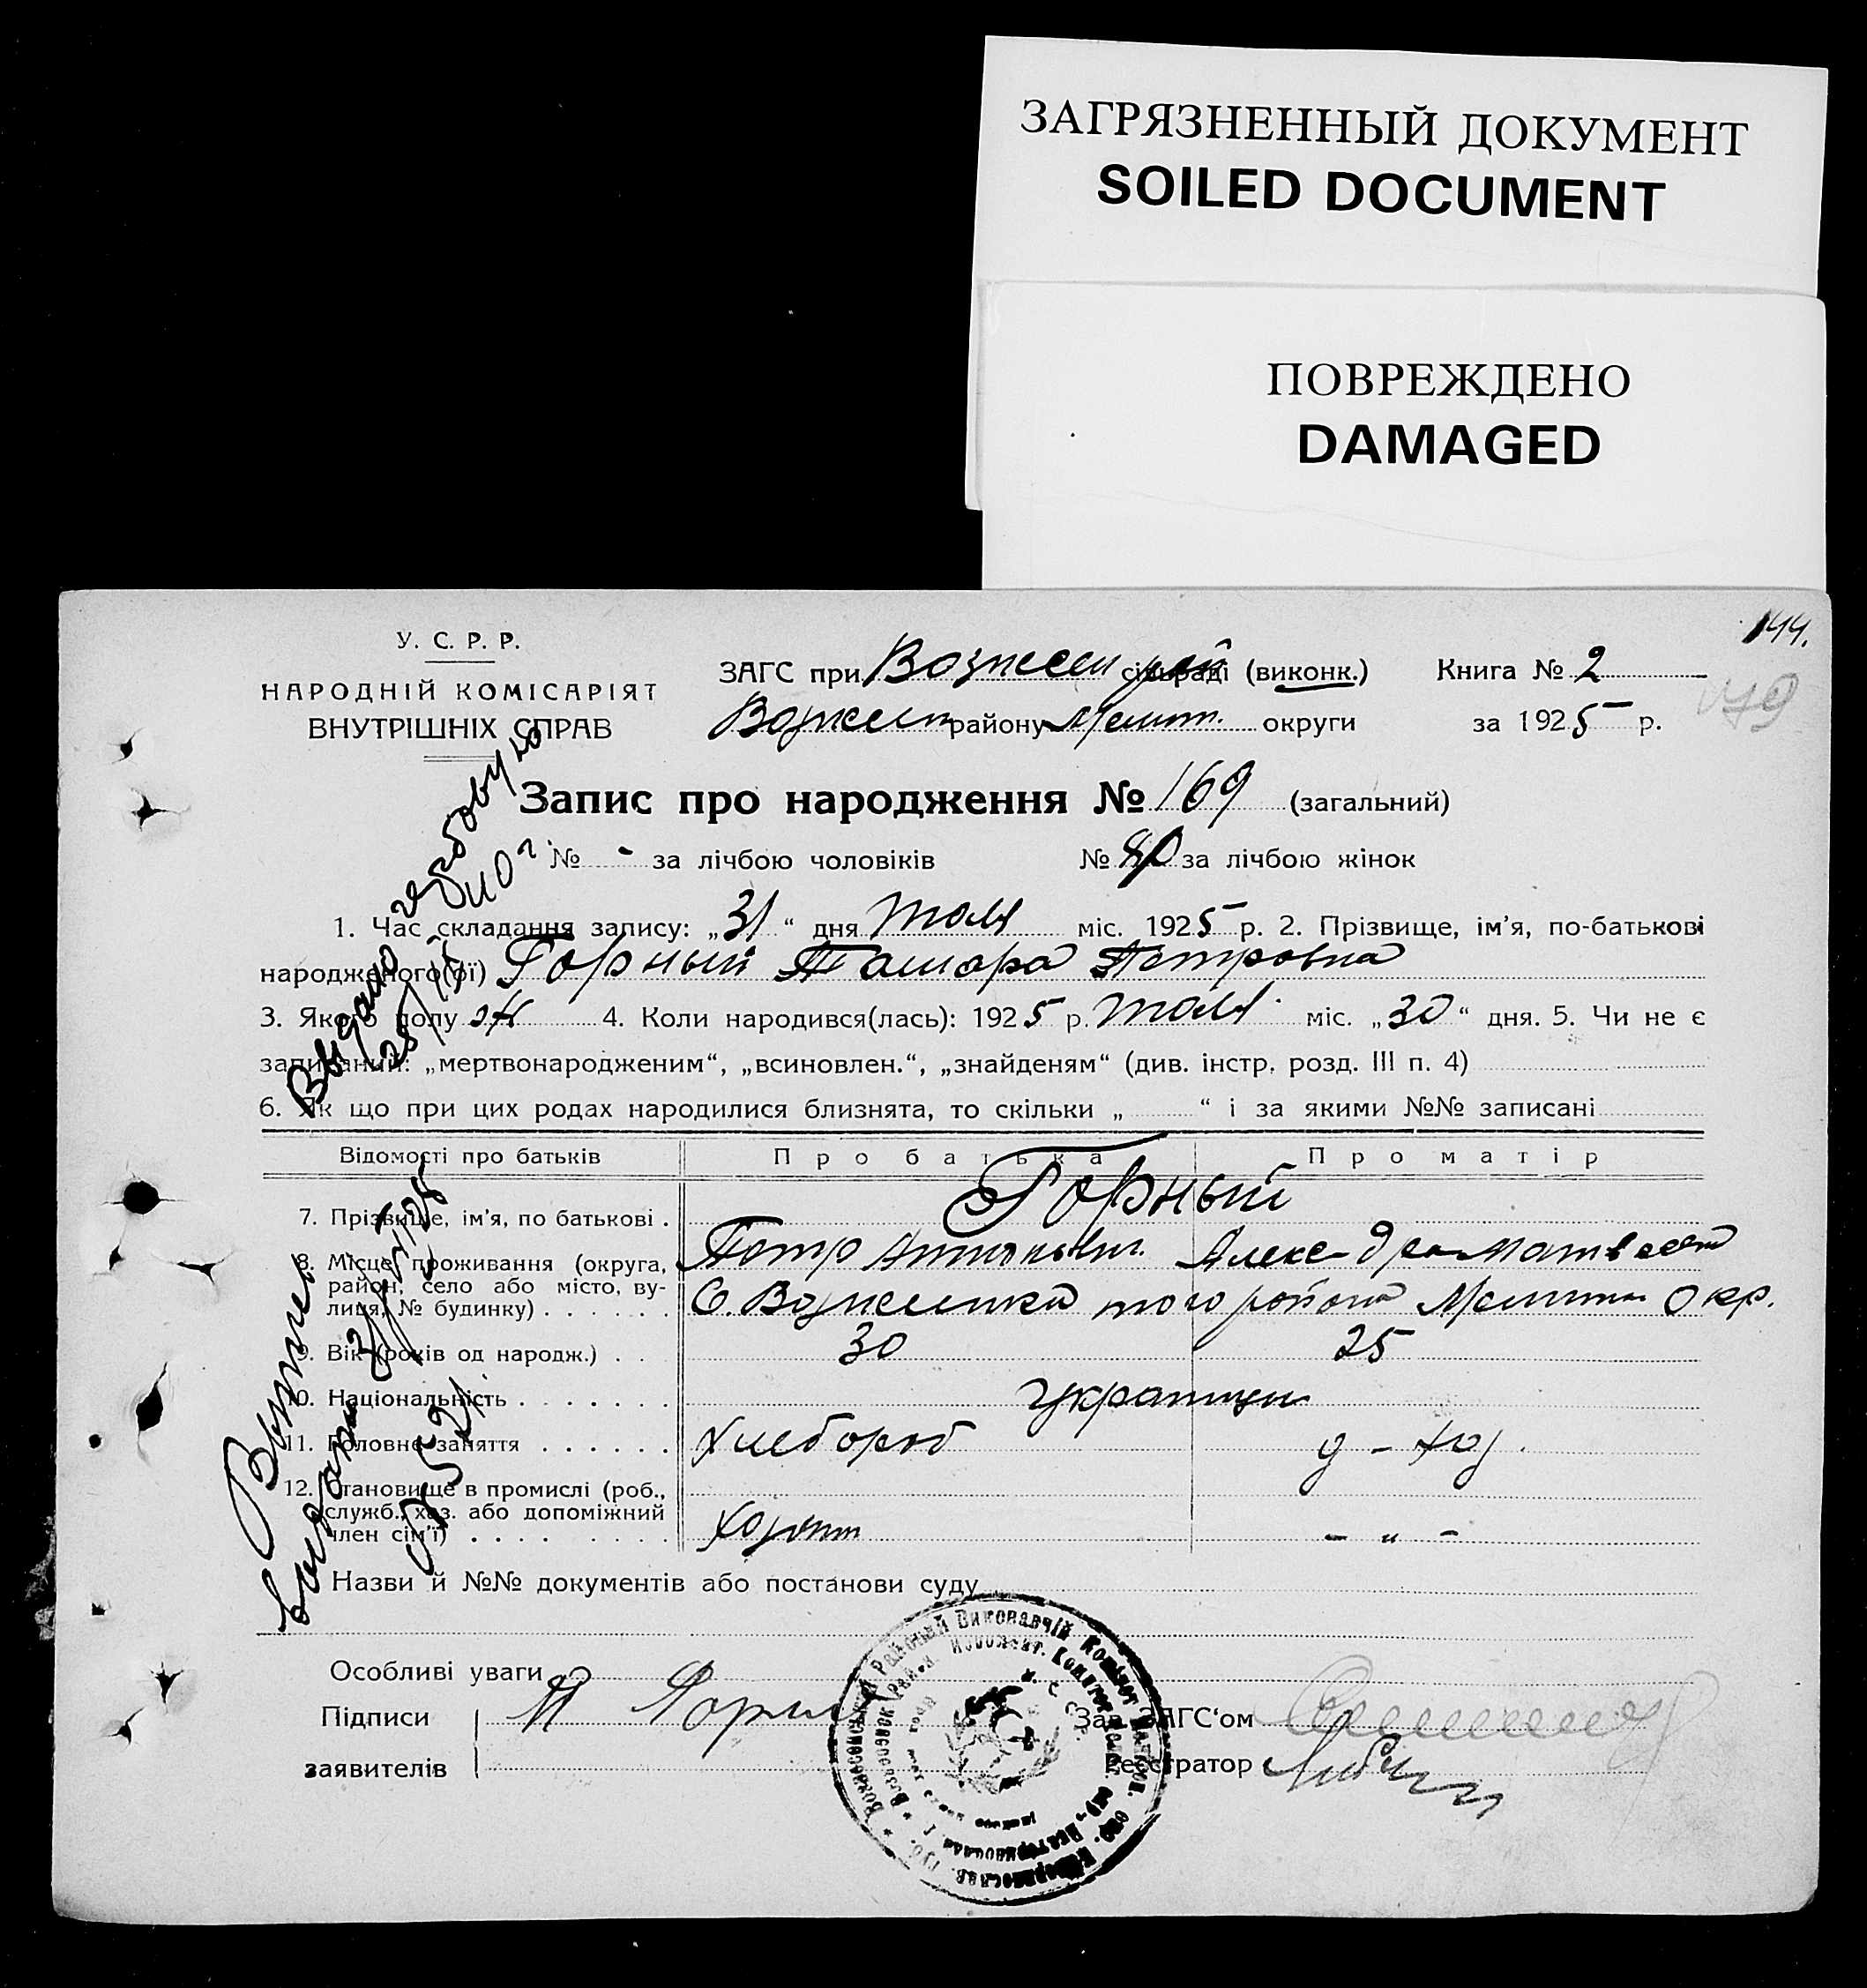 ЗАГРЯЗНЕННЫЙ ДОКУМЕНТ
SOILED DOCUMENT
ПОВРЕЖДЕНО
DAMAGED
144.
179
У. С. Р. Р.
НАРОДНІЙ КОМІСАРІЯТ
ВНУТРІШНІХ СПРАВ
ЗАГС при Вознесен рай сільраді (виконк.) Книга № 2
Вознесен району Мелит. округи за 1925 р.
Запис про народження № 169 (загальний)
№ - за лічбою чоловіків № 80 за лічбою жінок
1. Час складання запису: „31“ дня мая міс. 1925 р. 2. Прізвище, ім’я, по-батькові
народженого(ої) Горный Тамара Петровна
3. Якого полу ж 4. Коли народився(лась): 1925 р. мая міс. „30“ дня. 5. Чи не є
записаний: „мертвонародженим“, „всиновлен.“, „знайденям“ (див. інстр. розд. III п. 4)
6. Як що при цих родах народилися близнята, то скільки „ “ і за якими №№ записані
Відомості про батьків Про батька Про матір
7. Прізвище, ім’я, по батькові . Горный
Петр Антонович. Александра Матвеев
8. Місце проживання (округа,
район, село або місто, ву-
лиця, № будинку) . . . . . . С. Вознесенка того района Мелитп Окр.
9. Вік (років од народж.) . . 30 25
10. Національність . . . . . . . украинцы
11. Головне заняття . . . . . . Хлебороб д-хоз.
12. Становище в промислі (роб.,
служб., хаз. або допоміжний
член сім’ї) . . . . . . . . Хозяин - „ -
Назви й №№ документів або постанови суду
Особливі уваги
Підписи П Горный Зав. ЗАГС‘ом
заявителів Реєстратор
Вознесенський Районний Виконавчій Комітет
Выдано
Выпись
выдана